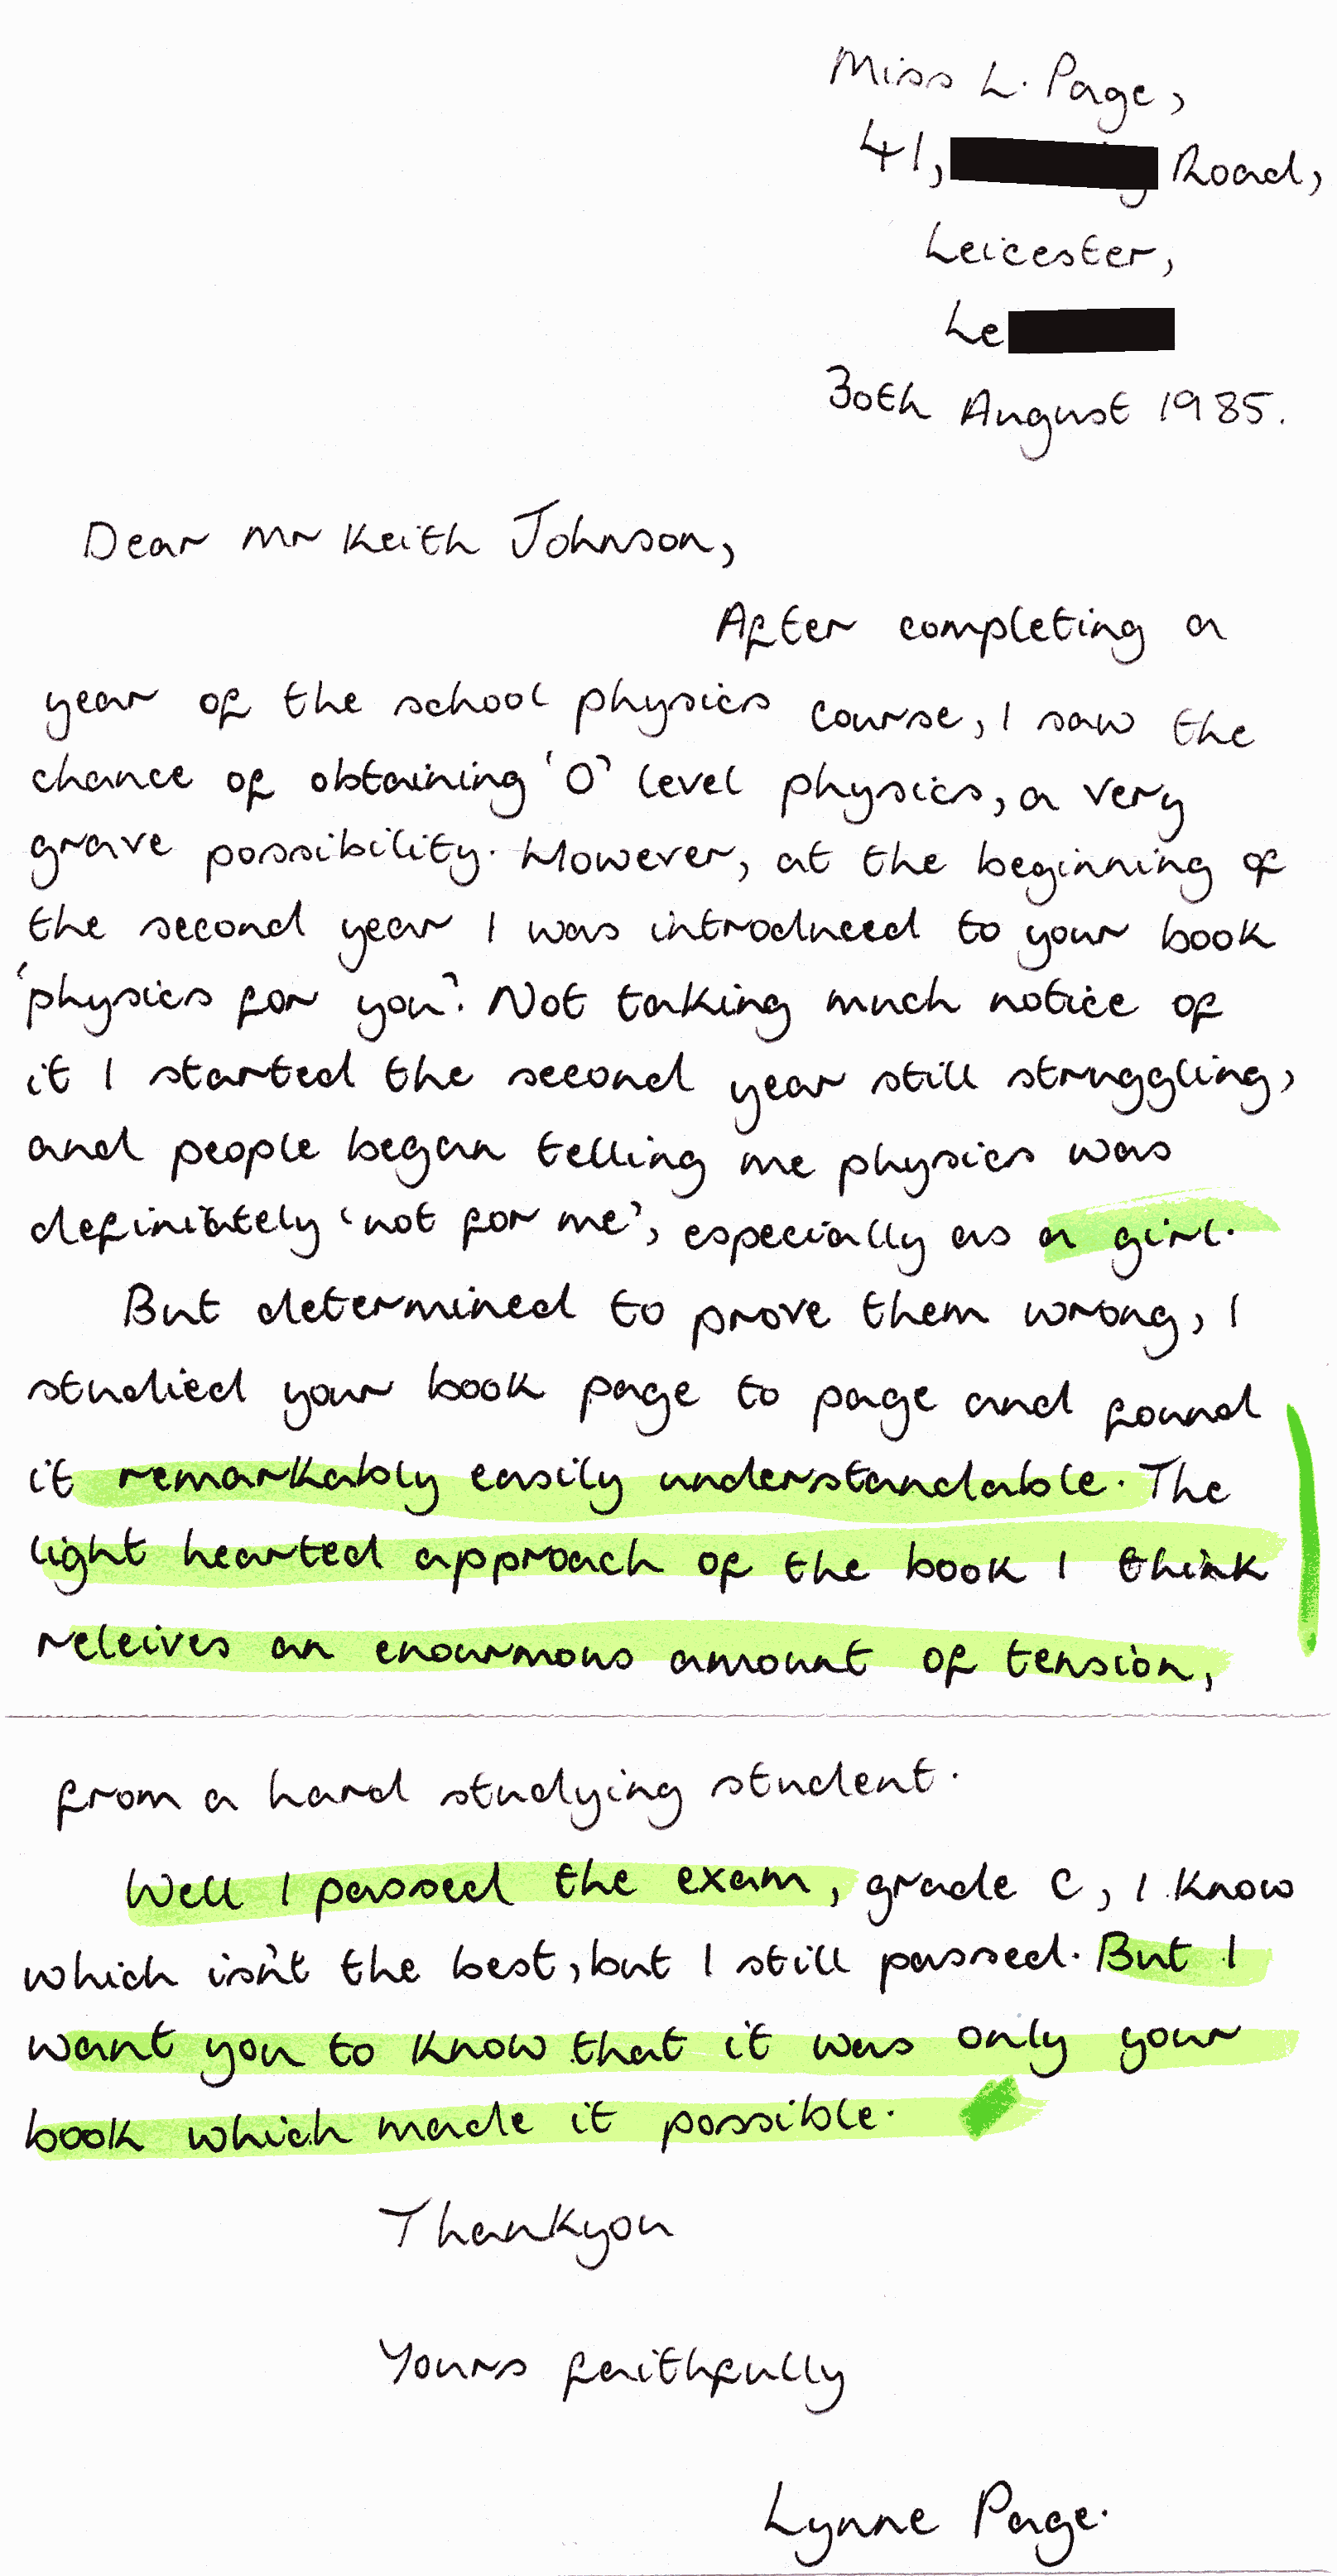 Miss L. Page,
41, Road,
Leicester,
Le
30th August 1985.
Dear Mr Keith Johnson,
After completing a
year of the school physics course, I saw the
chance of obtaining 'O' level physics, a very
grave possibility. However, at the beginning of
the second year I was introduced to your book
'physics for you'. Not taking much notice of
it I started the second year still struggling,
and people began telling me physics was
definitely 'not for me', especially as a girl.
But determined to prove them wrong, I
studied your book page to page and found
it remarkably easily understandable. The
light hearted approach of the book I think
releives an enourmous amount of tension,
from a hard studying student.
Well I passed the exam, grade C, I know
which isn't the best, but I still passed. But I
want you to know that it was only your
book which made it possible.
Thankyou
Yours faithfully
Lynne Page.